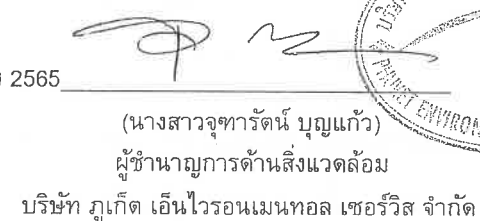 2565
(นางสาวจุฑารัตน์ บุญแก้ว)
ผู้ชำนาญการด้านสิ่งแวดล้อม
บริษัท ภูเก็ต เอ็นไวรอนเมนทอล เซอร์วิส จำกัด
PHUKET ENVIRON